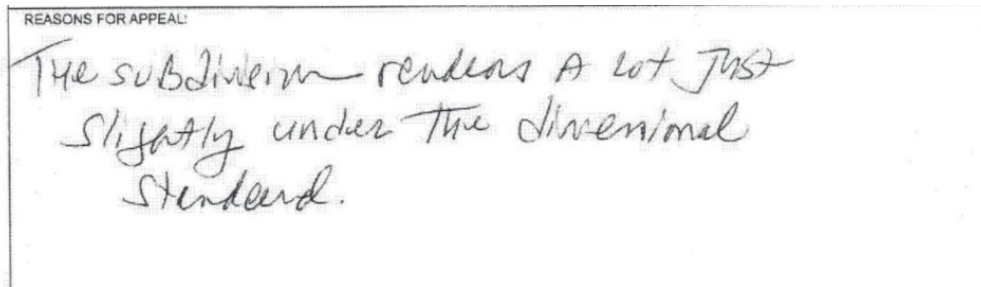 REASONS FOR APPEAL:
The subdivision renders A lot Just
slightly under The dimensional
standard.